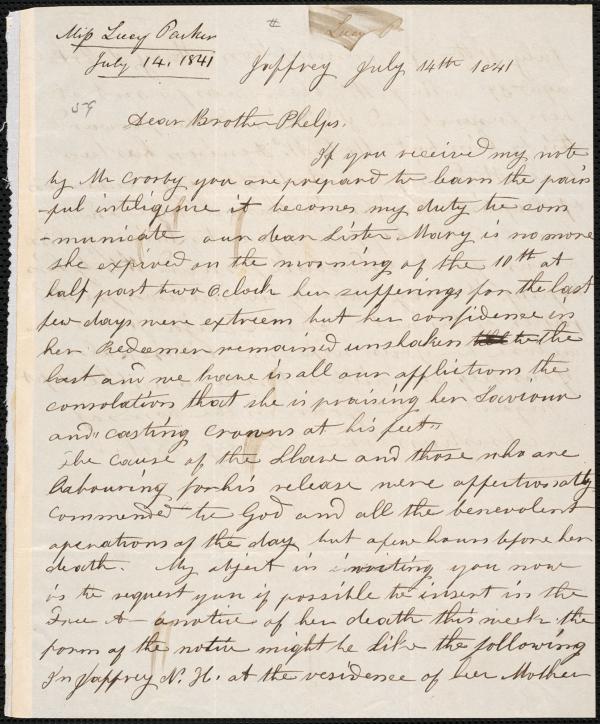 Miss Lucy Parker
July 14, 1841
#
Lucy P
Jaffrey July 14th 1841
59
Dear Brother Phelps.
If you received my note
by Mr Crosby you are prepard to learn the pain
-ful inteligence it becomes my duty to com
-municate our dear Sister Mary is no more
she expired on the morning of the 10th at
half past two O,clock her sufferings for the last
few days were extreem but her confidence in
her Redeemer remained unshaken the
last and we have in all our afflictions the
consolation that she is praising her Saviour
and "casting crowns at his feet"
The cause of the Slave and those who are
labouring for his release were affectionatly
commended to God and all the benevolent
operations of the day but a few hours before her
death. My object in writing you now
is to request you if possible to insert in the
Free A— a notice of her death this week the
form of the notice might be like the following
In Jaffrey N. H. at the residence of her Mother